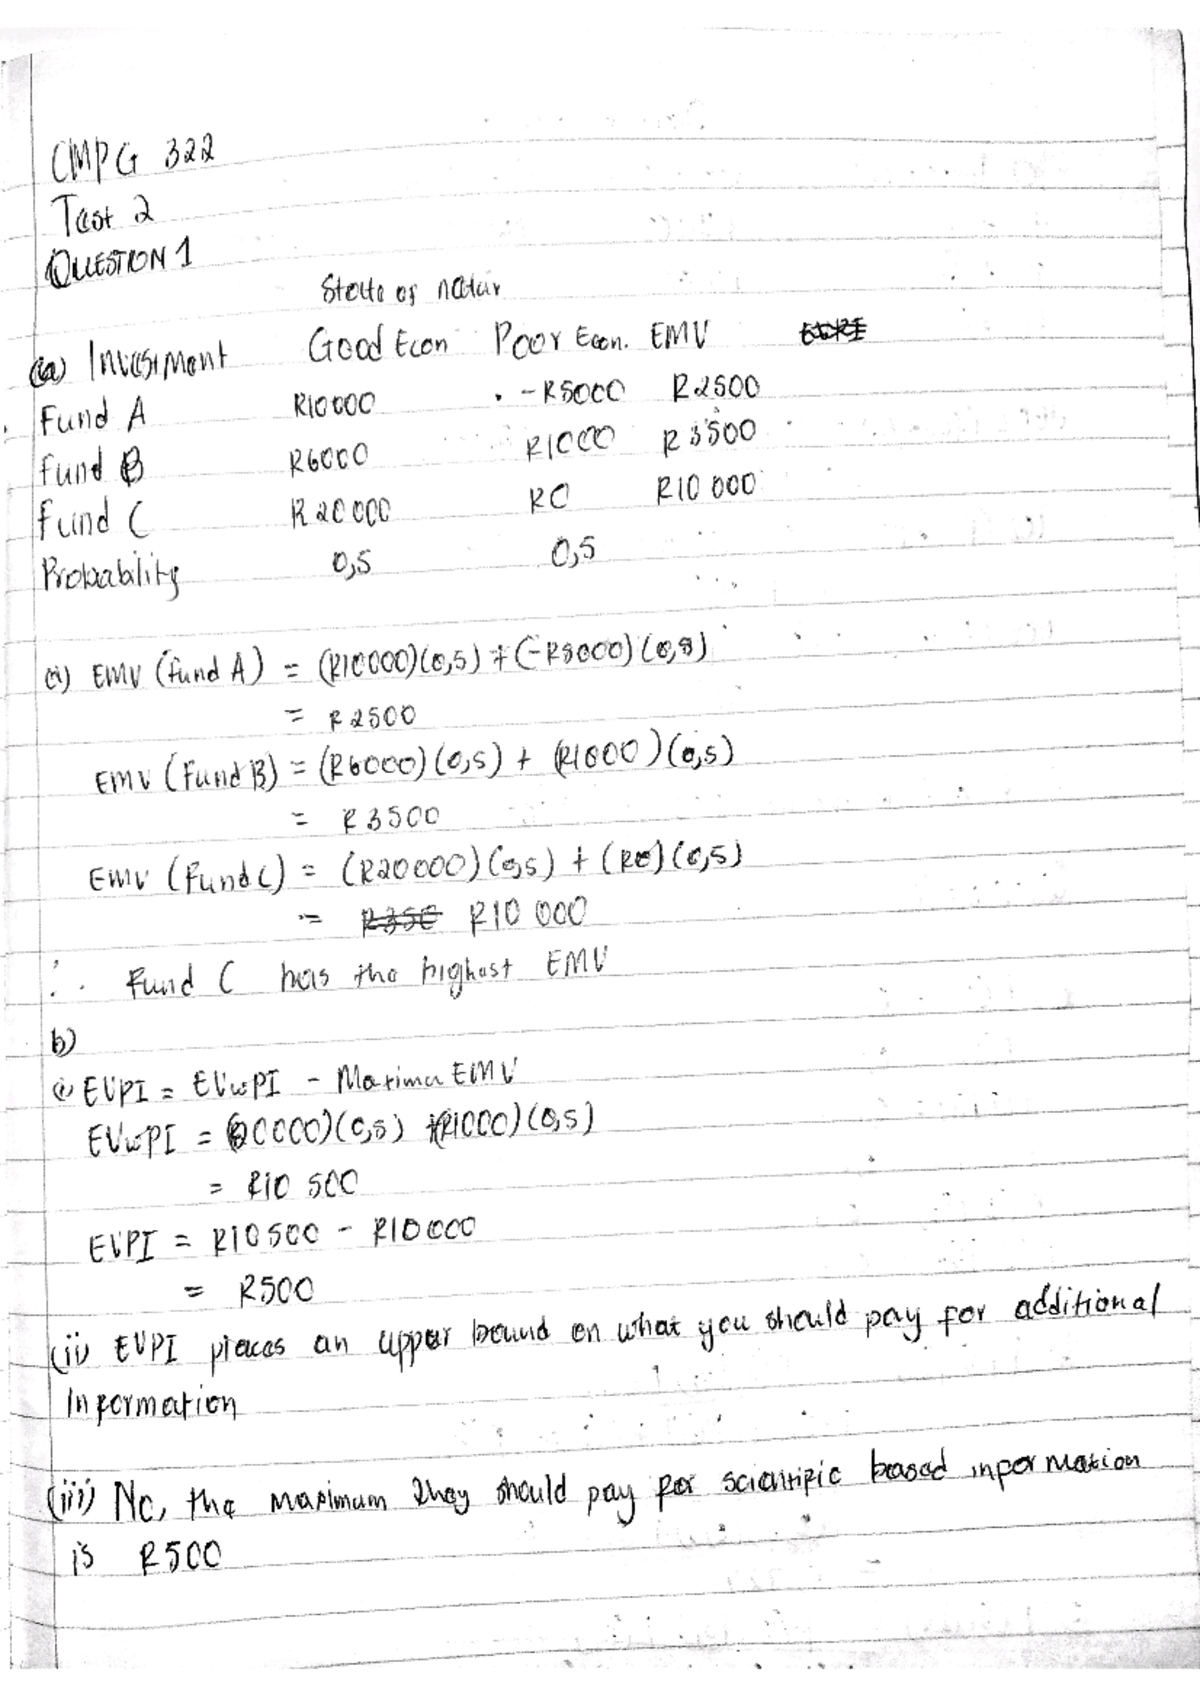 CMPG 322
Test 2
QUESTION 1
State of natur
(a) Investment Good Econ Poor Econ. EMV
Fund A R10000 -R5000 R2500
Fund B R6000 R1000 R3500
Fund C R20000 R0 R10 000
Probability 0,5 0,5
(i) EMV (Fund A) = (R10000)(0,5) + (-R5000)(0,5)
= R2500
EMV (Fund B) = (R6000)(0,5) + (R1000)(0,5)
= R3500
EMV (Fund C) = (R20000)(0,5) + (R0)(0,5)
= R350 R10 000
∴ Fund C has the highest EMV
b)
(i) EVPI = EVwPI - Maximum EMV
EVwPI = (20000)(0,5) + (R1000)(0,5)
= R10 500
EVPI = R10500 - R10000
= R500
(ii) EVPI places an upper bound on what you should pay for additional
Information
(iii) No, the maximum they should pay for scientific based information
is R500